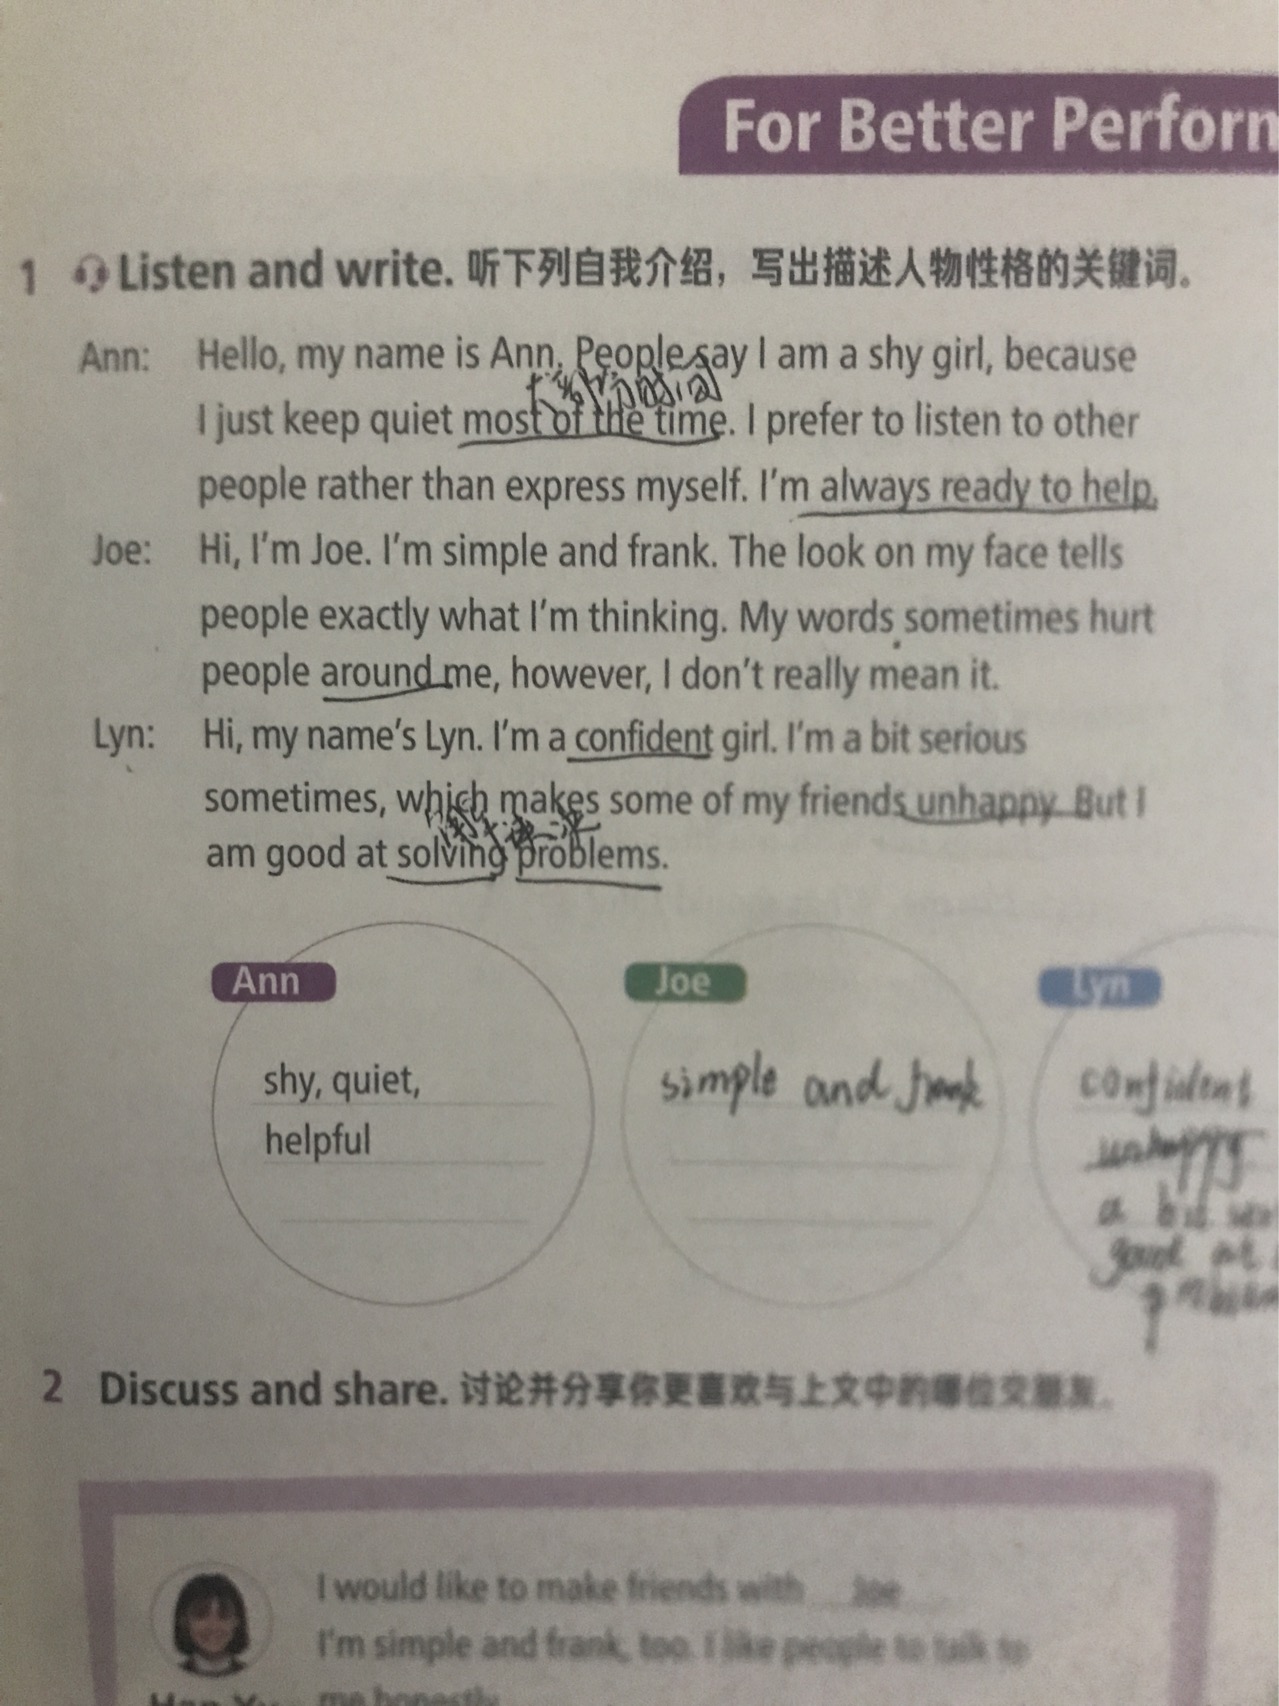 For Better Perform
1 Listen and write. 听下列自我介绍，写出描述人物性格的关键词。
Ann: Hello, my name is Ann. People say I am a shy girl, because
大部分时间
I just keep quiet most of the time. I prefer to listen to other
people rather than express myself. I'm always ready to help.
Joe: Hi, I'm Joe. I'm simple and frank. The look on my face tells
people exactly what I'm thinking. My words sometimes hurt
people around me, however, I don't really mean it.
Lyn: Hi, my name's Lyn. I'm a confident girl. I'm a bit serious
sometimes, which makes some of my friends unhappy. But I
am good at solving problems.
Ann Joe Lyn
shy, quiet, simple and frank confident
helpful unhappy
a bit
good at
2 Discuss and share. 讨论并分享你更喜欢与上文中的哪位交朋友。
I would like to make friends with Joe
I'm simple and frank, too. I like people to talk to
me honestly.